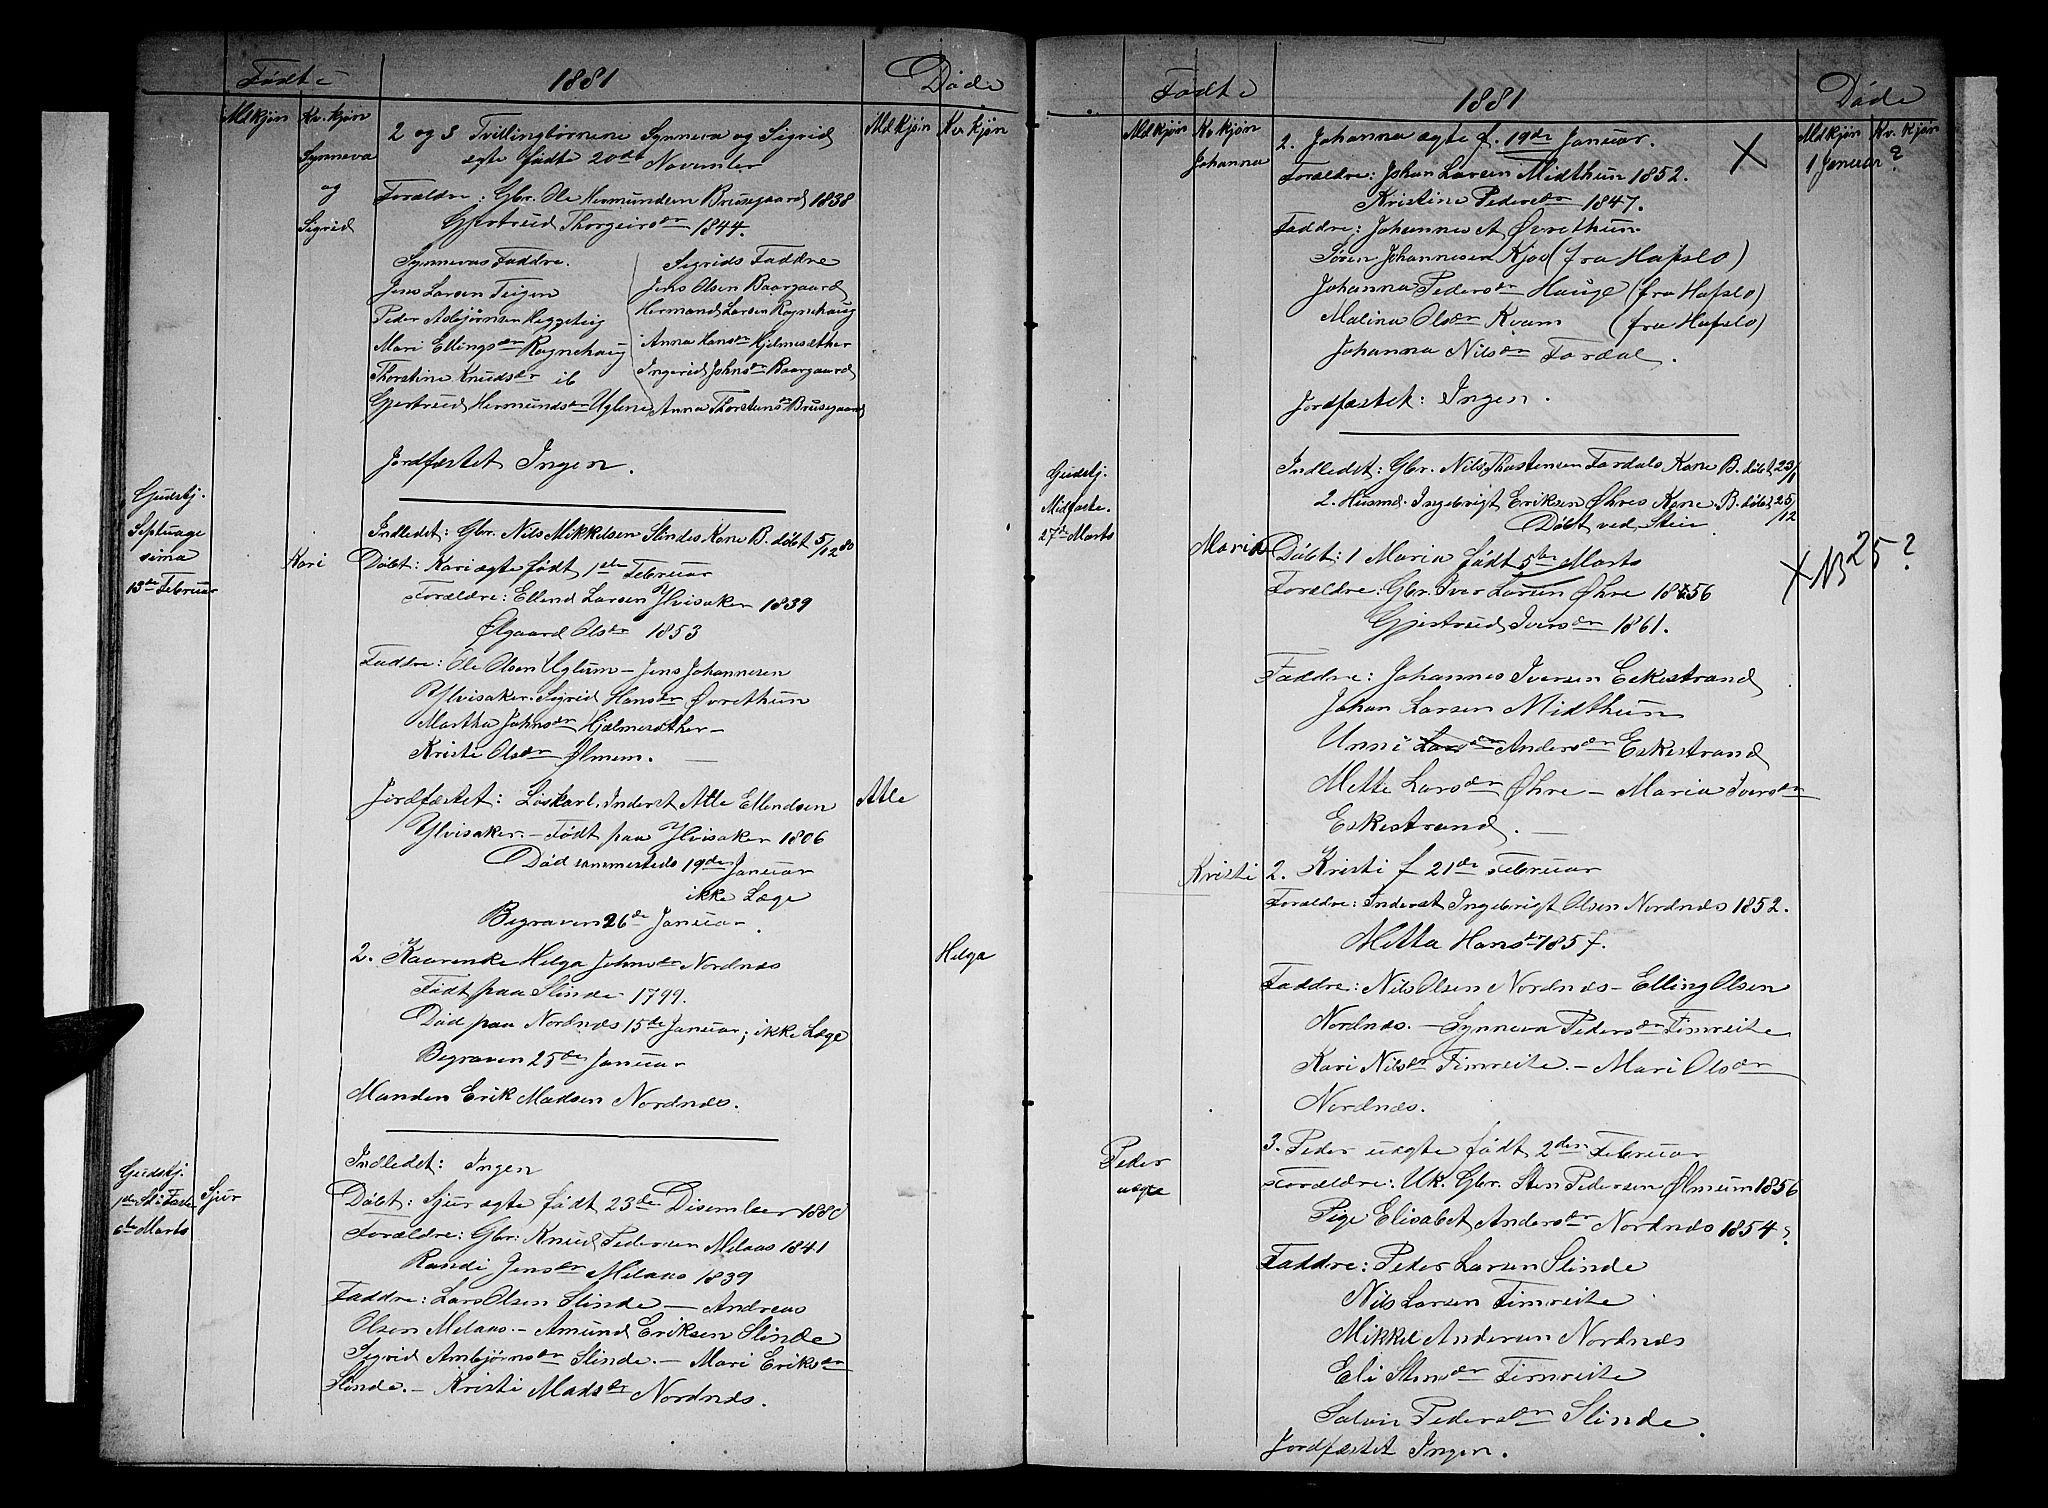 Fødte 1881 Døde
Mdkjøn Kv. kjøn Mdkjøn Kv kjøn
Synneva og Sigrid
2 og 3 Tvillingbørnene Synneva og Sigrid
ægte fødte 20de November
Forældre: Gbr. Ole Hermundsen Bruse­gaard 1838
Gjertrud Thorgeirsdr 1844.
Synnevas Faddre.
Jens Larsen Teigen
Peder Asbjørnsen Heggestig
Mari Ellingsdr Ragnehaug
Thorstine Knudsdr ib
Gjertrud Hermundsdr Uglene
Sigrids Faddre
Jens Olsen Baargaard
Hermand Larsen Ragnehaug
Anna Hansdr Hjelmesæther
Ingerid Johnsdr Baargaard
Anna Thorstensdr Brusegaard
Jordfæstet Ingen.
Gudstj.
Septuage
sima
13de Februar
Indledet: Gbr. Nils Mikkelsen Slindes Kone B. døbt 5/12 80
Kari
Døbt: Kari ægte født 1de Februar
Forældre: Ellend Larsen Ylvisaker 1839
Ølgaard Olsdr 1853
Faddre: Ole Olsen Uglum – Jens Johannesen
Ylvisaker. Sigrid Hansdr Øvrethun
Martha Johnsdr Hjælmesæther –
Kristi Olsdr Ølmem. –
Jordfæstet: Løskarl, Inderst Atle Ellendsen Atle
Ylvisaker. – Født paa Ylvisaker 1806
Død sammesteds 19de Januar
ikke Læge
Begraven 26de Januar.
2. Kaarenke Helga Johnsdr Nordnæs Helga
Født paa Slinde 1799.
Død paa Nordnæs 15de Januar; ikke Læge
Begraven 25de Januar
Manden Erik Madsen Nordnæs.
Gudstj.
1de S. i Faste
6te Marts
Sjur
Indledet: Ingen
Døbt: Sjur ægte født 23de Disember 1880
Forældre: Gbr: Knud Pedersen Melaas 1841
Randi Jensdr Melaas 1839
Faddre: Lars Olsen Slinde – Andreas
Olsen Melaas. – Amund Eriksen Slinde
Sigrid Ambjørnsdr Slinde. – Mari Eriksdr
Slinde. – Kristi Madsdr Nordnæs.
Fødte 1881 Døde
Mdkjøn Kv kjøn Mdkjøn Kv. kjøn
Johanna
2. Johanna ægte f. 19de Januar. X 1 Januar ?
Forældre: Johan Larsen Midthun 1852.
Kristine Pedersdr 1847.
Faddre: Johannes A Øvrethun
Søren Johannesen Kjos (fra Hafslo)
Johanna Pedersdr Hauge (fra Hafslo)
Malina Olsdr Kvam (fra Hafslo)
Johanna Nilsdr Fardal.
Jordfæstet: Ingen.
Gudstj.
Midfaste.
27de Marts
Indledet: Gbr. Nils Thorstensen Fardals Kone B. døbt 23/1
2. Husmd. Ingebrigt Eriksen Øhres Kone B. døbt 25/12
Døbt ved Stein
Maria
Døbt: 1 Maria født 5te Marts X NB 25 ?
Forældre: Gbr. Iver Larsen Øhre 1856
Gjertrud Iversdr 1861.
Faddre: Johannes Iversen Eskestrand
Johan Larsen Midthun
Unni Larsdr Andersdr Eskestrand
Mette Larsdr Øhre – Maria Iversdr
Eskestrand. –
Kristi 2. Kristi f 21de Februar
Forældre: Inderst Ingebrigt Olsen Nordnæs 1852.
Metta Hansdr 1857.
Faddre: Nils Olsen Nordnæs – Elling Olsen
Nordnæs. – Synneva Pedersdr Fimreite
Kari Nilsdr Fimreite. – Mari Olsdr
Nordnæs.
Peder
uægte
3. Peder uægte født 2den Februar
Forældre: Uk. Gbr. Sten Pedersen Ølmeim 1856
Pige Elisabet Andersdr Nordnæs 1854?
Faddre: Peder Larsen Slinde
Nils Larsen Fimreite
Mikkel Andersen Nordnæs
Eli Stensdr Fimreite
Salvi Pedersdr Slinde.
Jordfæstet Ingen.